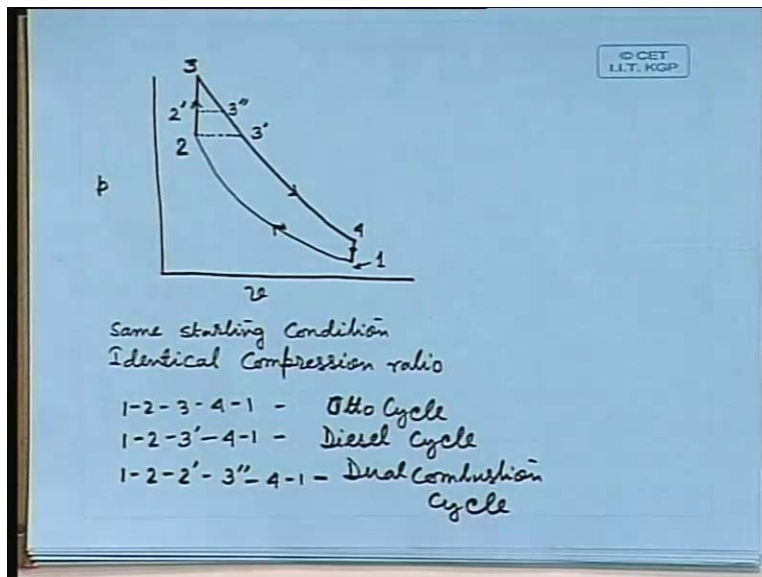 © CET
I.I.T. KGP
3
2' 3"
2 3'
p
4
1
v
Same starting Condition
Identical Compression ratio
1-2-3-4-1 - Otto Cycle
1-2-3'-4-1 - Diesel Cycle
1-2-2'-3"-4-1 - Dual Combustion
Cycle